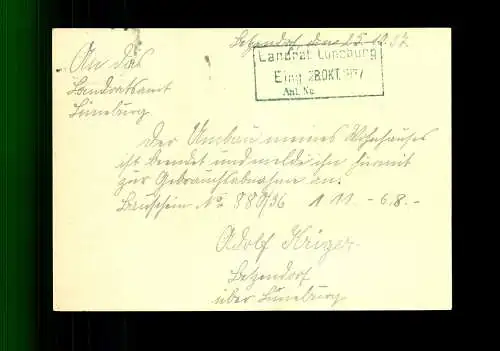 Betzendorf, den 25.10.37
Landrat Lüneburg
Eing. 28.OKT.1937
Anl. No.
An das
Landratsamt
Lüneburg
Der Umbau meines Wohnhauses
ist beendet und melde ihn hiermit
zur Gebrauchsabnahme an.
Bauschein No 880/36 1 11. - 6.8. -
Adolf Krüger
Betzendorf
über Lüneburg